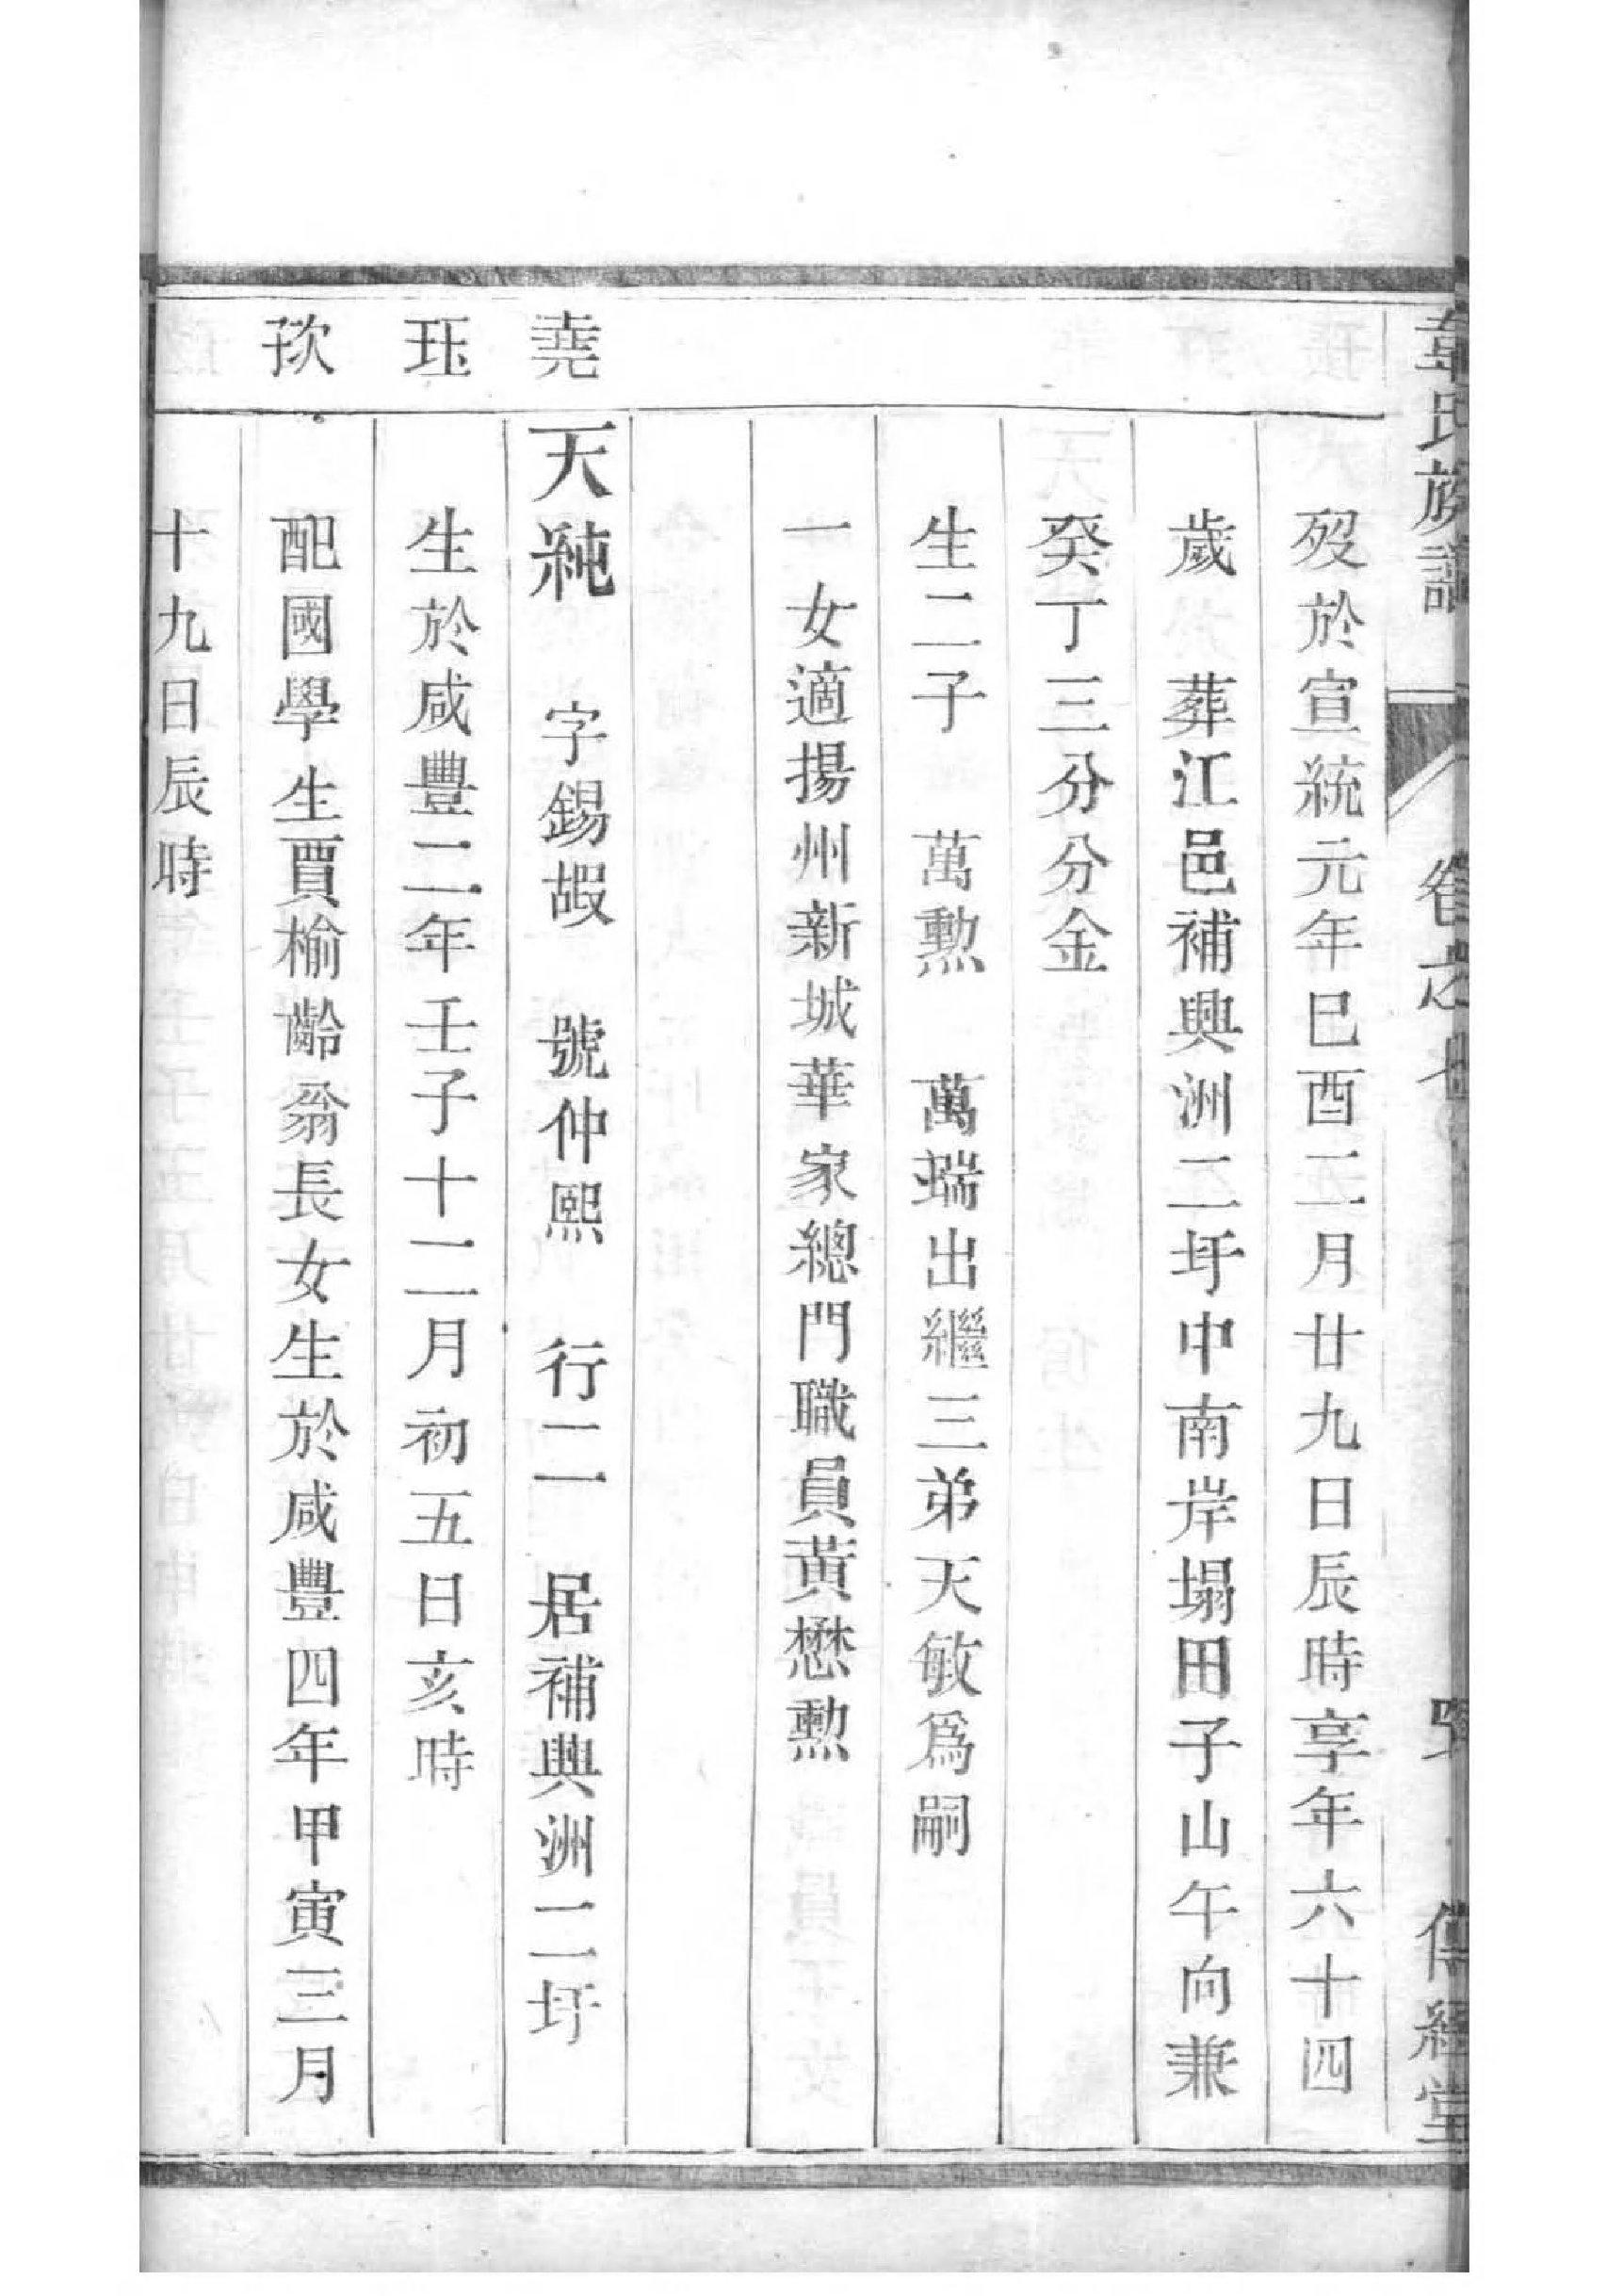 韋氏族譜　卷之七　傳經堂
歿於宣統元年巳酉二月廿九日辰時享年六十四
歲　葬江邑補興洲二圩中南岸塌田子山午向兼
癸丁三分分金
生二子　萬勲　萬瑞出繼三弟天敏爲嗣
一女適揚州新城華家總門職員黃懋勲
堯
天純　字錫嘏　號仲熙　行二　居補興洲二圩
珏
生於咸豐二年壬子十二月初五日亥時
配國學生賈榆齡翁長女生於咸豐四年甲寅三月
十九日辰時